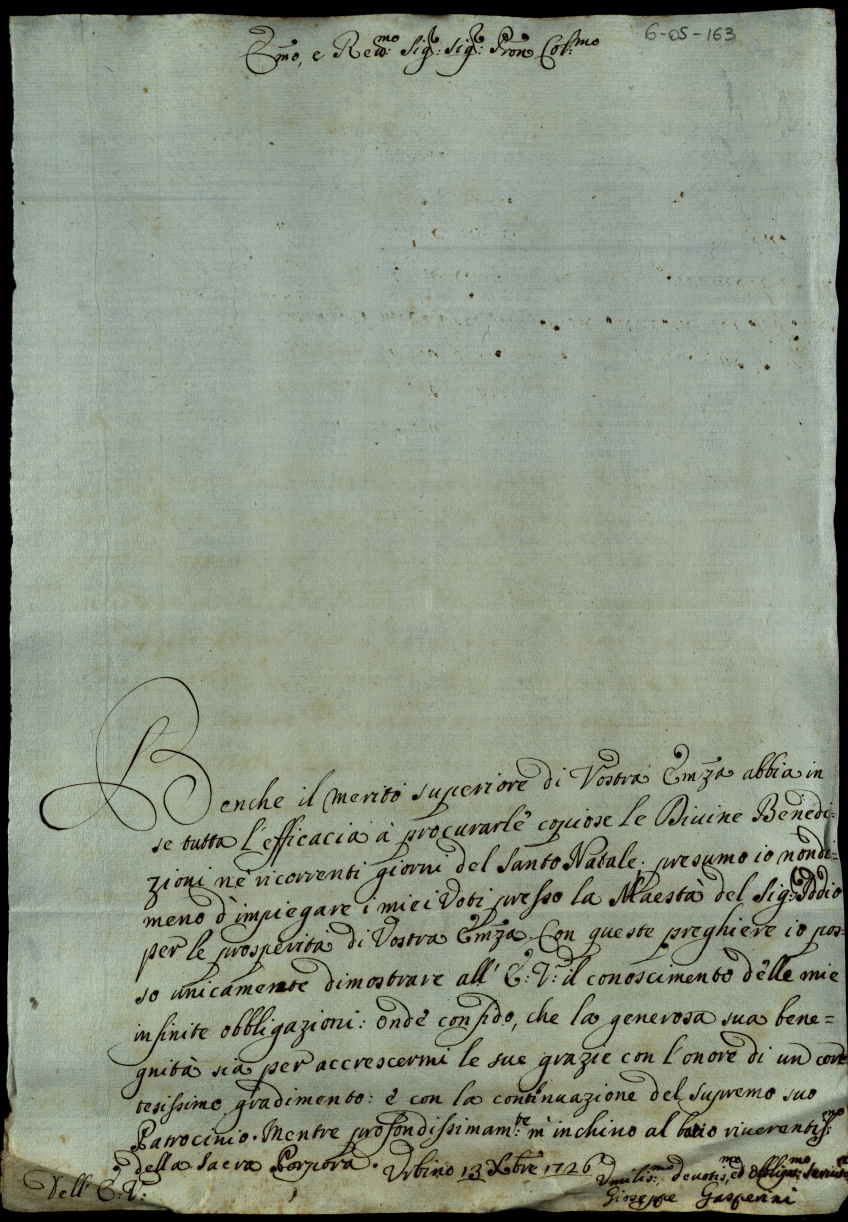 6-05-163
Emo, e Reumo: Sigr: Sigr: Pron Colmo
Benche il merito superiore di Vostra Emza abbia in
se tutta l'efficacia à procurarle copiose le Divine Benedi:
zioni nè ricorrenti giorni del Santo Natale; presumo io nondi=
meno d'impiegare i miei Voti presso la Maestà del Sig: Iddio
per le prosperità di Vostra Emza. Con queste preghiere io pos=
so unicamente dimostrare all' E: V: il conoscimento delle mie
infinite obbligazioni: onde confido, che la generosa sua bene=
gnità sia per accrescermi le sue grazie con l'onore di un cor
tesissimo gradimento: e con la continuazione del supremo suo
Patrocinio. Mentre profondissimamte m'inchino al bacio riverentismo
della Sacra Porpora. Urbino 13 Xbre 1726
Dell' E: V:
Umilismo: devotismo, ed Obbligmo:
Giuseppe Gasperini